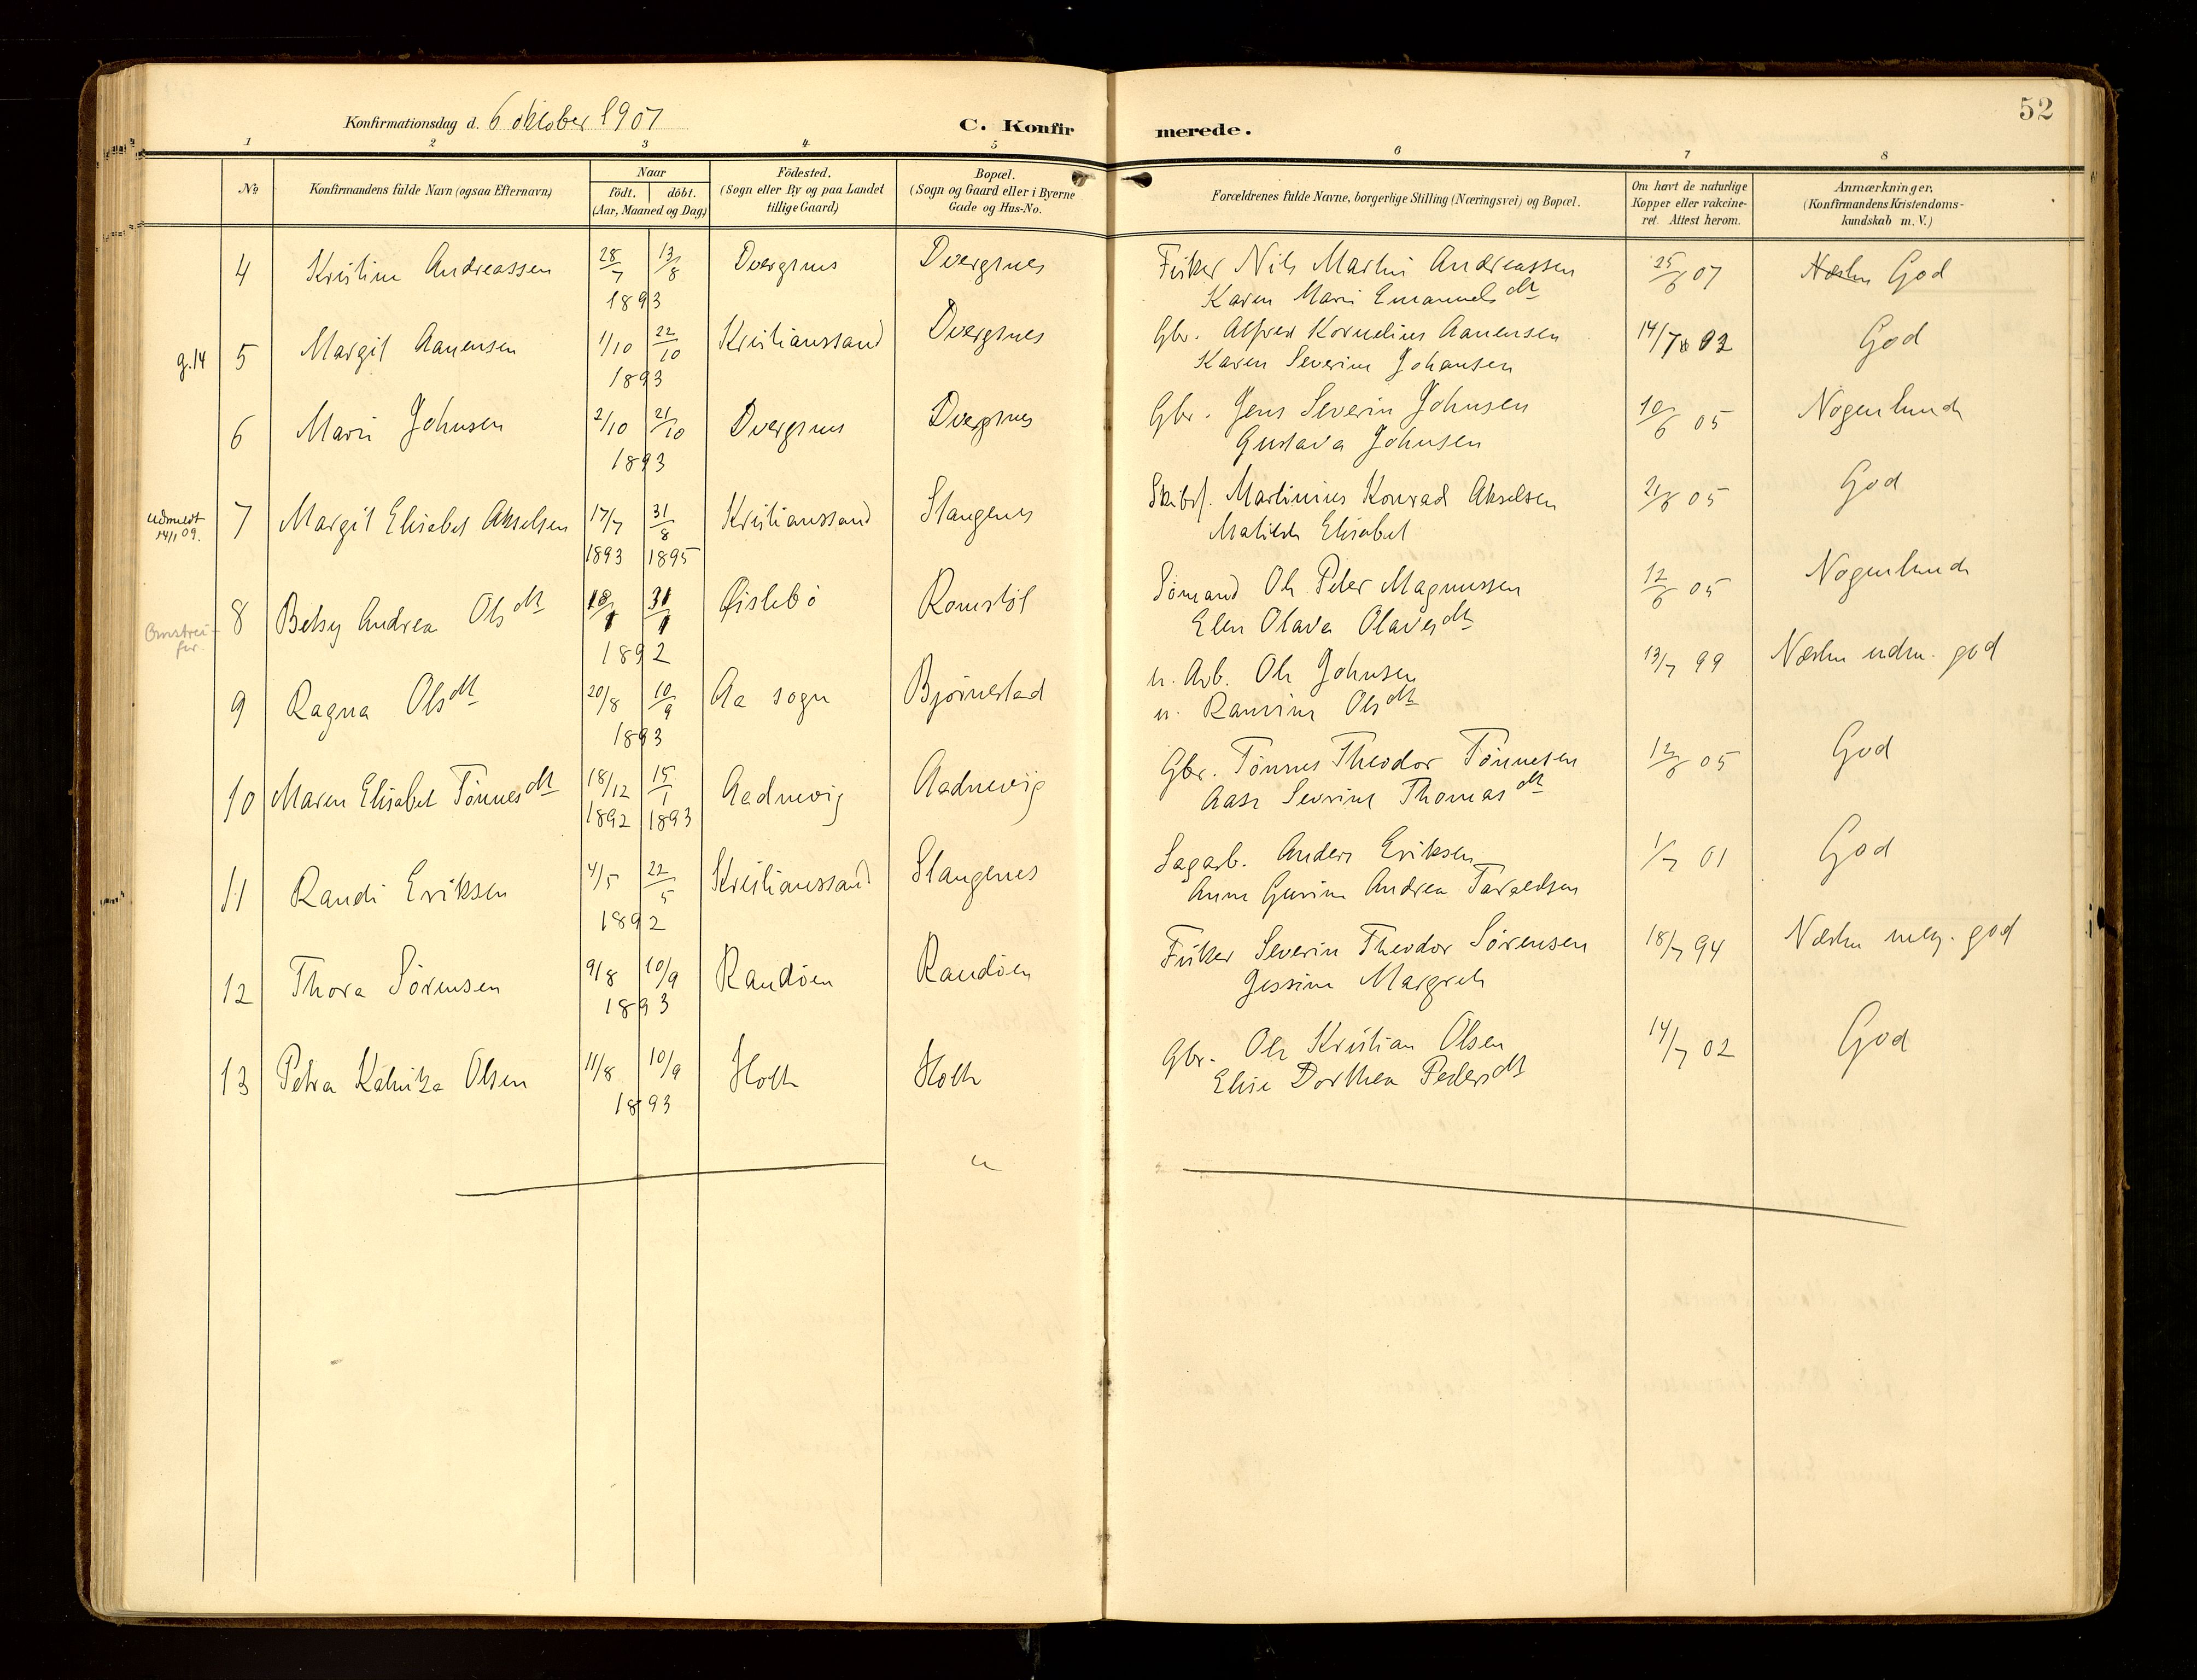 52
Konfirmationsdag d. 6 oktober 1907
C. Konfir merede.
1 2 3 4 5 6 7 8
No
Konfirmandens fulde Navn (ogsaa Efternavn)
Naar
födt. döbt.
(Aar, Maaned og Dag)
Födested.
(Sogn eller By og paa Landet
tillige Gaard)
Bopæl.
(Sogn og Gaard eller i Byerne
Gade og Hus-No.
Forældrenes fulde Navne, borgerlige Stilling (Næringsvei) og Bopæl.
Om havt de naturlige
Kopper eller vakcine-
ret. Attest herom.
Anmærkninger.
(Konfirmandens Kristendoms-
kundskab m. V.)
4 Kristine Andreassen 28/7 13/8 Dvergsnes Dvergsnes Fisker Nils Martin Andreassen 25/6 07 Næsten God
1893 Karen Marie Emanuelsdtr
g.14 5 Margit Aanensen 1/10 22/10 Kristianssand Dvergsnes Gbr. Alfred Kornelius Aanensen 14/7 02 God
1893 Karen Severine Johansen
6 Marie Johnsen 2/10 21/10 Dvergsnes Dvergsnes Gbr. Jens Severin Johnsen 10/6 05 Nogenlunde
1893 Gustava Johnsen
udmeldt
14/1 09. 7 Margit Elisabet Akselsen 17/7 31/8 Kristianssand Stangenes Skibsf. Martinius Konrad Akselsen 21/6 05 God
1893 1895 Matilde Elisabet
8 Betsy Andrea Olsdtr 18/1 31/1 Øislebö Romstöl Sömand Ole Peter Magnussen 12/6 05 Nogenlunde
1892 Elen Olava Olavesdtr
9 Ragna Olsdtr 20/8 10/9 Aa sogn Björnestad u. Arb. Ole Johnsen 13/7 99 Næsten udm. god
1893 u. Ramine Olsdtr
10 Maren Elisabet Tönnesdtr 18/12 15/1 Aadnevig Aadnevig Gbr. Tönnes Theodor Tönnesen 12/6 05 God
1892 1893 Aase Sevrine Thomasdtr
11 Randi Eriksen 4/5 22/5 Kristianssand Stangenes Sagarb. Anders Eriksen 1/7 01 God
1892 Anne Gurine Andrea Taraldsen
12 Thora Sörensen 9/8 10/9 Randöen Randöen Fisker Severin Theodor Sörensen 18/7 94 Næsten meg. god
1893 Jessine Margrete
13 Petra Kalnika Olsen 11/8 10/9 Holte Holte Gbr. Ole Kristian Olsen 14/7 02 God
1893 Elise Dorthea Pedersdtr